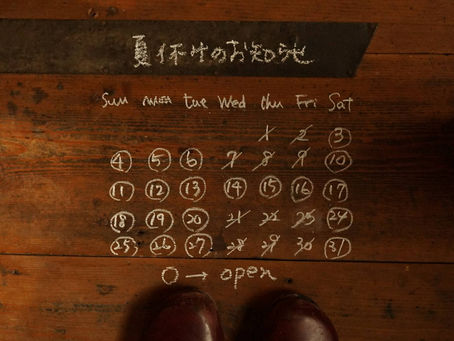 夏休みのお知らせ
Sun Mon Tue Wed thu Fri Sat
1 2 3
4 5 6 7 8 9 10
11 12 13 14 15 16 17
18 19 20 21 22 23 24
25 26 27 28 29 30 31
○→open